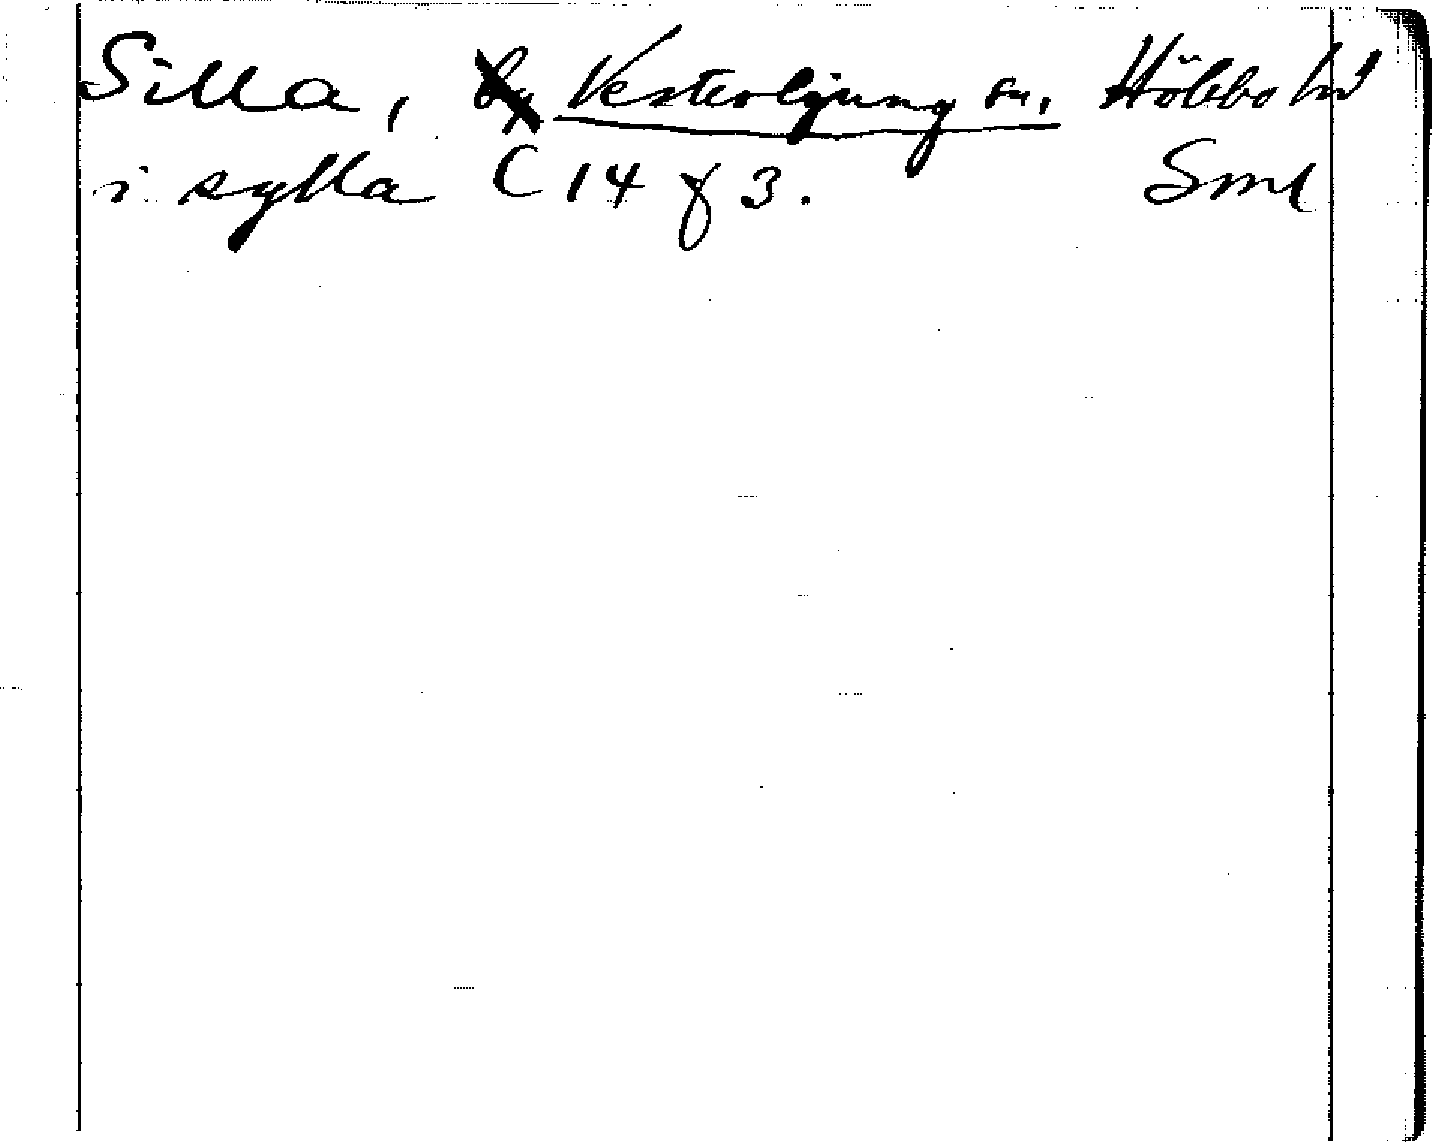 Silla, Vesterljung sn, Hölebo hd
i sylla C 14 f 3. Sml